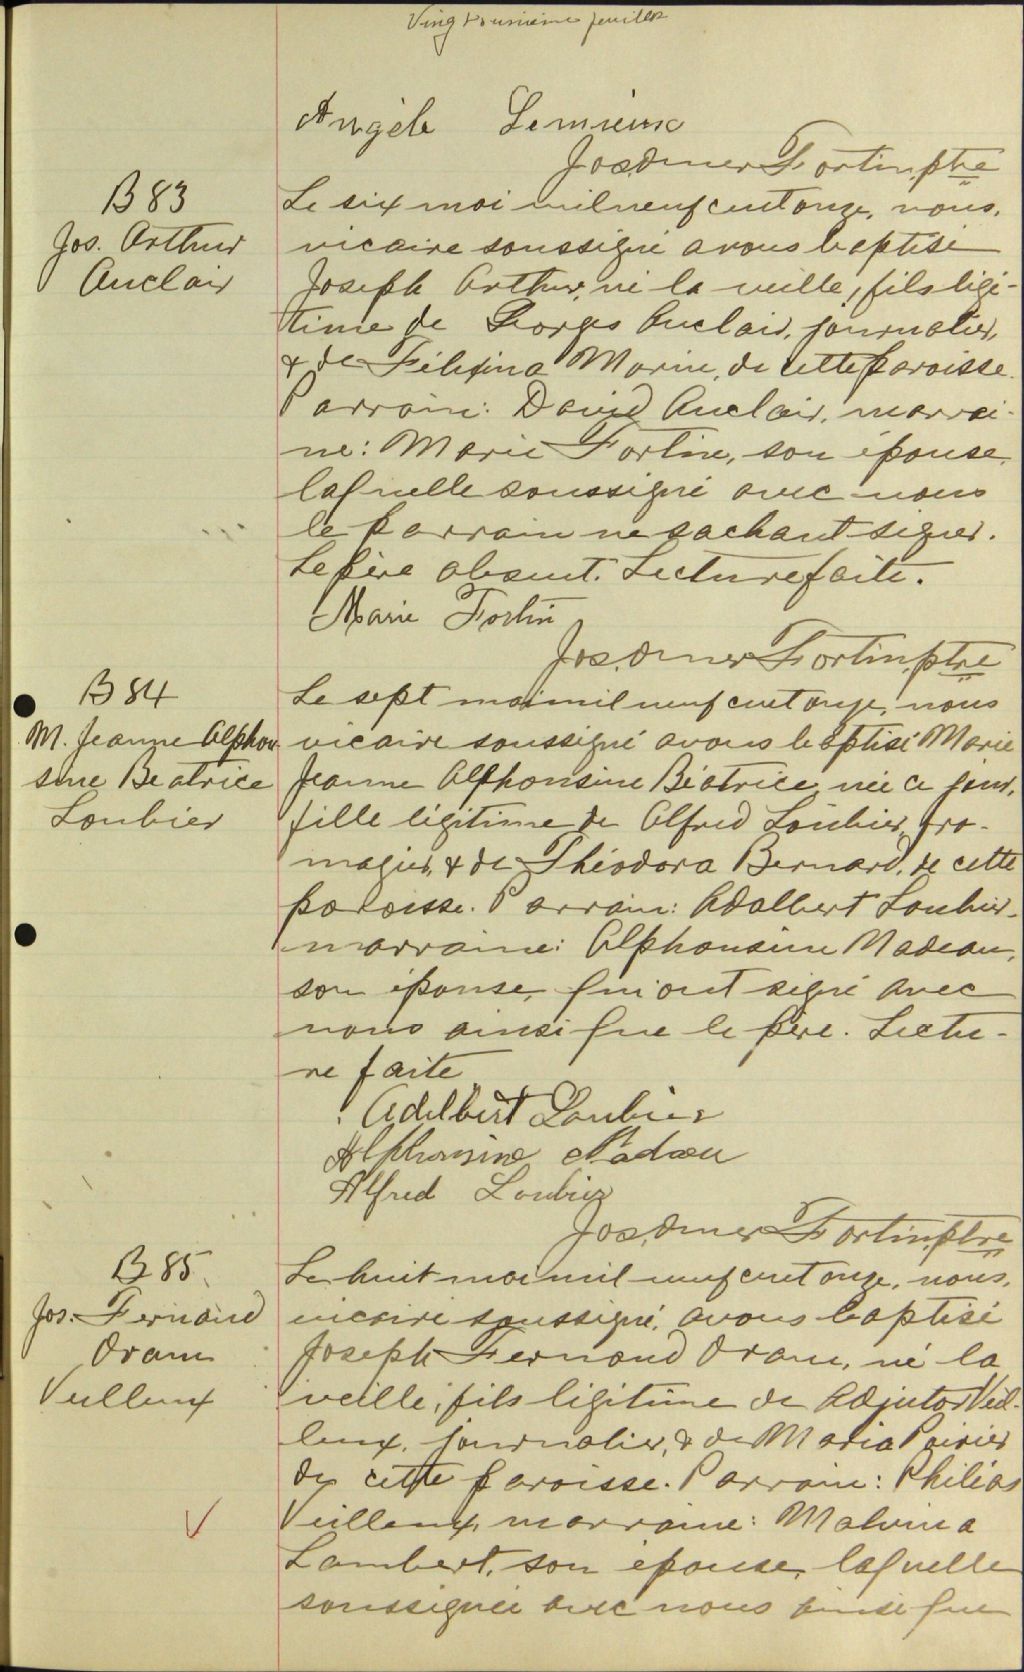 Angèle Lemieux
Jos. Omer Fortin, ptre
B 83
Jos. Arthur
Auclair
Le six mai mil neuf cent onze, nous,
vicaire soussigné avons baptisé
Joseph Arthur, né la veille, fils légi-
time de Georges Auclair, journalier,
& de Marin, de cette paroisse.
Parrain: David Auclair, marrai-
ne: Marie Fortin, son épouse,
laquelle soussigné avec nous
le parrain ne sachant signer.
Le père absent. Lecture faite.
Marie Fortin
Jos. Omer Fortin, ptre
B 84
M. Jeanne Alphon
sine Beatrice
Loubier
Le sept mai mil neuf cent onze, nous
vicaire soussigné avons baptisé Marie
Jeanne Alphonsine Béatrice, née ce jour,
fille légitime de Alfred Loubier, fro-
magier, & de Théodora Bernard, de cette
paroisse. Parrain: Adalbert Loubier,
marraine: Alphonsine Nadeau,
son épouse, qui ont signé avec
nous ainsi que le père. Lectu-
re faite
Adelbert Loubier
Alphonsine Nadeau
Alfred Loubier
Jos. Omer Fortin, ptre
B 85
Jos. Fernand
Oram
Veilleux
Le huit mai mil neuf cent onze, nous,
vicaire soussigné, avons baptisé
Joseph Fernand Oram, né la
veille, fils légitime de Adjutor Veil-
leux, journalier, & de Maria Poirier
de cette paroisse. Parrain: Philias
Veilleux, marraine: Malvina
Lambert, son épouse, laquelle
soussignée avec nous ainsi que